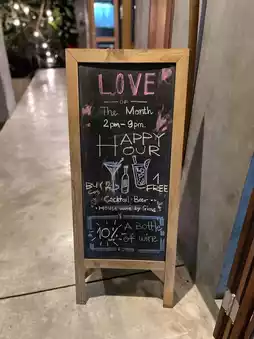 LOVE
The Month
2pm-9pm
HAPPY
HOUR
BUY 2
1
FREE
Cocktail Bar
House wine by Glass
10%
A Bottle
of wine